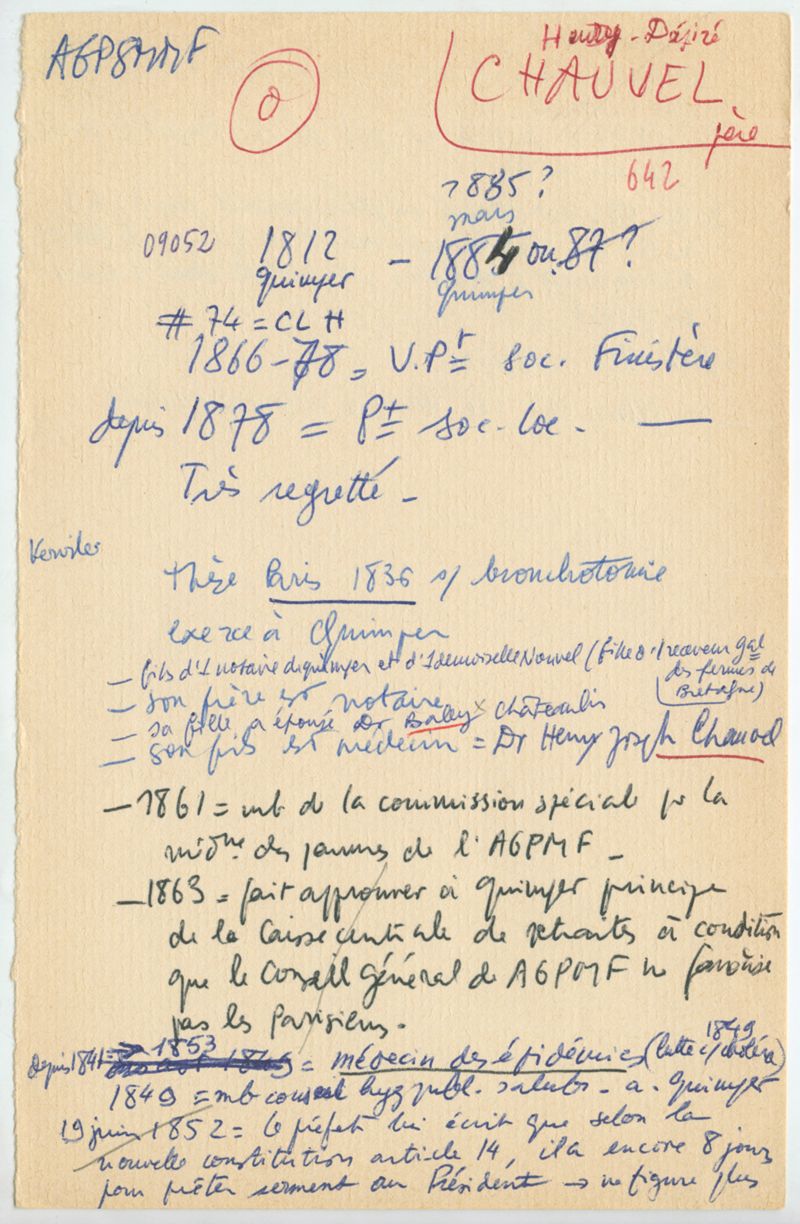 AGPSMMF
Henry-Désiré
0
CHAUVEL
père
642
1885?
mais
09052 1812 - 1884 ou 87?
Quimper Quimper
# 74 = CLH
1866-78 = V.Pt soc. Finistère
depuis 1878 = Pt soc. loc. —
Très regretté -
Kerviler
thèse Paris 1836 s/ bronchotomie
exerce à Quimper
— fils d'1 notaire de quimper et d'1 demoiselle Nouvel (fille d'1 receveur gal
des fermes de
Bretagne)
— son frère est notaire
— sa fille a épousé Dr Baley x châteaulin
— son fils est médecin = Dr Henry Joseph Chauvel
— 1861 = mb de la commission spéciale pr la
des jaunes de l'AGPMF —
— 1863 = fait approuver à Quimper principe
de la Caisse centrale de retraites à condition
que le Conseil Général de AGPMF ne favorise
pas les Parisiens.
1853 1849
depuis 1841 = médecin des épidémies (lutte c/ choléra)
1849 = mb conseil hyg publ. salubr. a. Quimper
19 juin 1852 = le préfet lui écrit que selon la
nouvelle constitution article 14, il a encore 8 jours
pour prêter serment au Président → ne figure plus